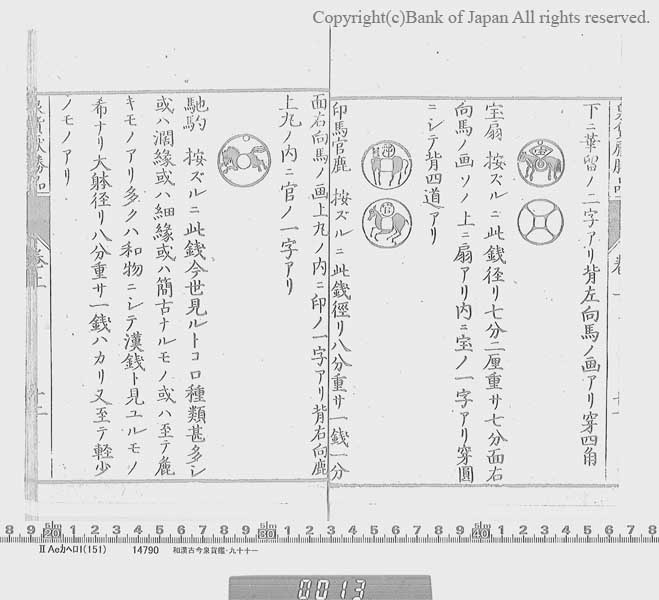 Copyright(c)Bank of Japan All rights reserved.
下ニ華留ノ二字アリ背左向馬ノ画アリ穿四角
宝扇 按ズルニ此銭径リ七分二厘重サ七分面右
向馬ノ画ソノ上ニ扇アリ内ニ宝ノ一字アリ穿圓
ニシテ背四道アリ
印馬官鹿 按ズルニ此銭徑リ八分重サ一銭一分
面右向馬ノ画上丸ノ内ニ印ノ一字アリ背右向鹿
上丸ノ内ニ官ノ一字アリ
馳駒 按ズルニ此銭今世見ルトコロ種類甚多シ
或ハ濶縁或ハ細縁或ハ簡古ナルモノ或ハ至テ麁
キモノアリ多クハ和物ニシテ漢銭ト見ユルモノ
希ナリ大躰径リ八分重サ一銭ハカリ又至テ軽少
ノモノアリ
8 9 20 1 2 3 4 5 6 7 8 9 30 1 2 3 4 5 6 7 8 9 40 1 2 3 4 5 6 7 8
II Aeカヘロ1(151) 14790 和漢古今泉貨鑑・九十十一
0013